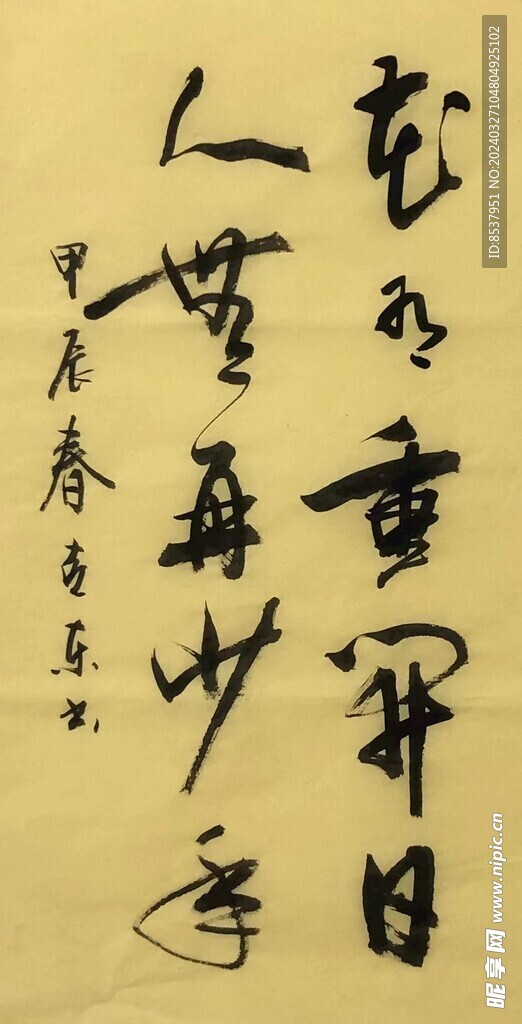 花有重開日
人無再少年
甲辰春克东书
ID:8537951 NO:20240327104804925102
昵享网 www.nipic.cn